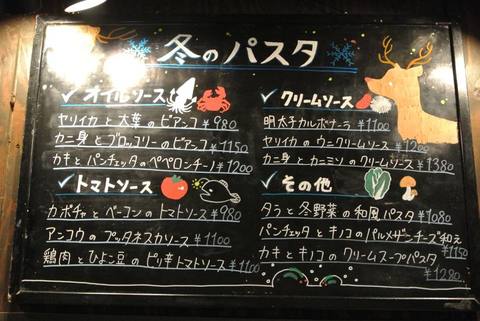 冬のパスタ
✓オイルソース
ヤリイカと大葉のビアンコ ¥980
カニ身とブロッコリーのビアンコ ¥1150
カキとパンチェッタのペペロンチーノ ¥1200
✓トマトソース
カボチャとベーコンのトマトソース ¥980
アンコウのプッタネスカソース ¥1100
鶏肉とひよこ豆のピリ辛トマトソース ¥1100
✓クリームソース
明太子カルボナーラ ¥1100
ヤリイカのウニクリームソース ¥1200
カニ身とカニミソのクリームソース ¥1380
✓その他
タラと冬野菜の和風パスタ ¥1080
パンチェッタとキノコのパルメザンチーズ和え
¥1150
カキとキノコのクリームスープパスタ
¥1280